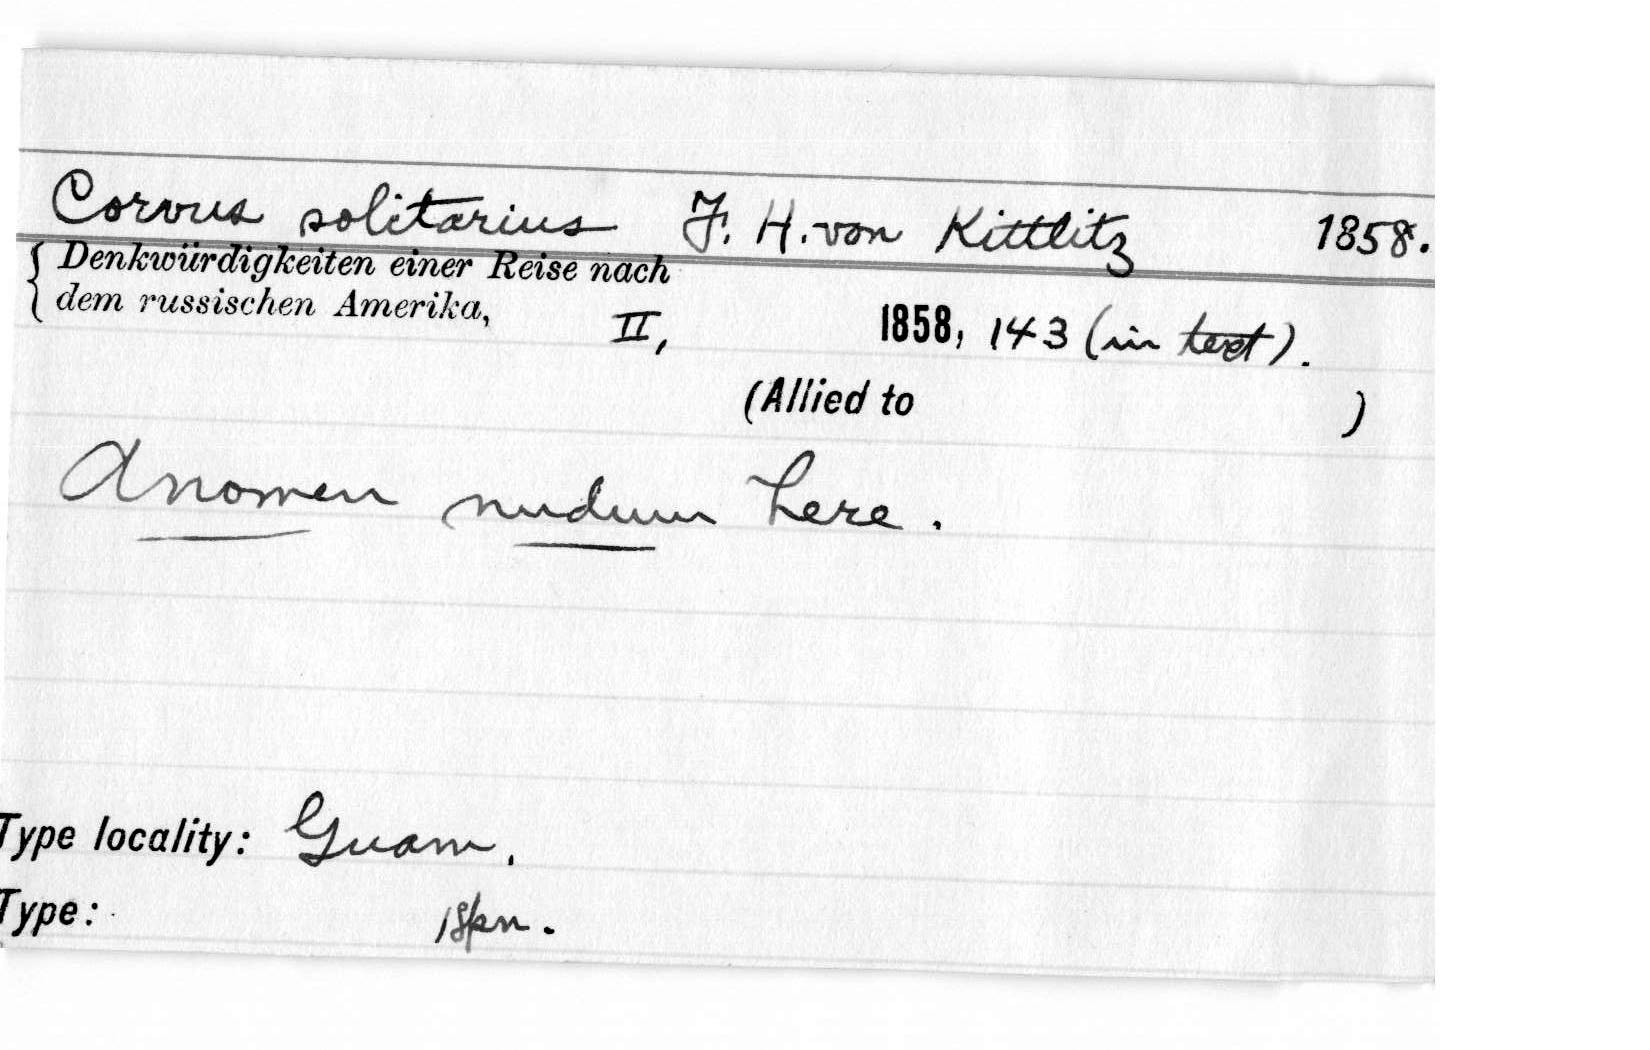 Corvus solitarius F. H. von Kittlitz 1858.
Denkwürdigkeiten einer Reise nach
dem russischen Amerika,
II, 1858, 143 (in text).
(Allied to )
A nomen nudum here.
Type locality: Guam.
Type: 1 spn.